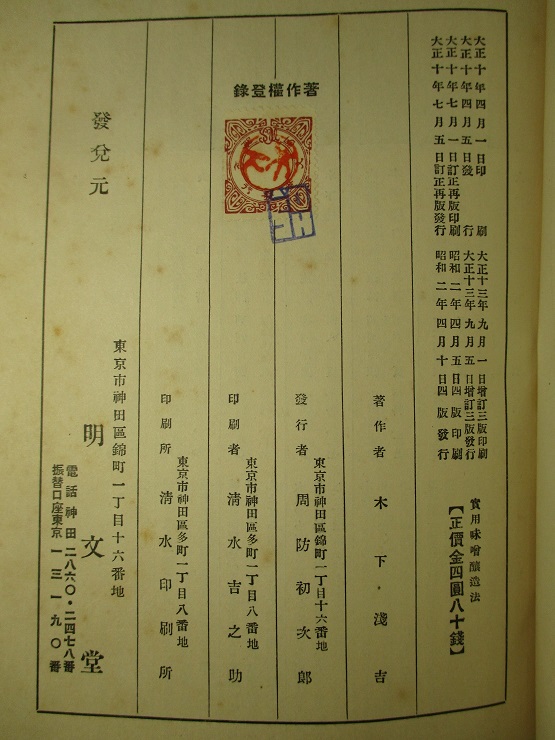 大正十年四月一日印刷
大正十年四月五日發行
大正十年七月一日訂正再版印刷
大正十年七月五日訂正再版發行
大正十三年九月一日增訂三版印刷
大正十三年九月五日增訂三版發行
昭和二年四月五日四版印刷
昭和二年四月十日四版發行
實用味噌釀造法
【正價金四圓八十錢】
著作者 木下淺吉
東京市神田區錦町一丁目十六番地
發行者 周防初次郎
東京市神田區多町一丁目八番地
印刷者 清水吉之助
東京市神田區多町一丁目八番地
印刷所 清水印刷所
著作權登錄
發兌元
東京市神田區錦町一丁目十六番地
明文堂
電話神田二八六〇・二四七八番
振替口座東京一三一九〇番